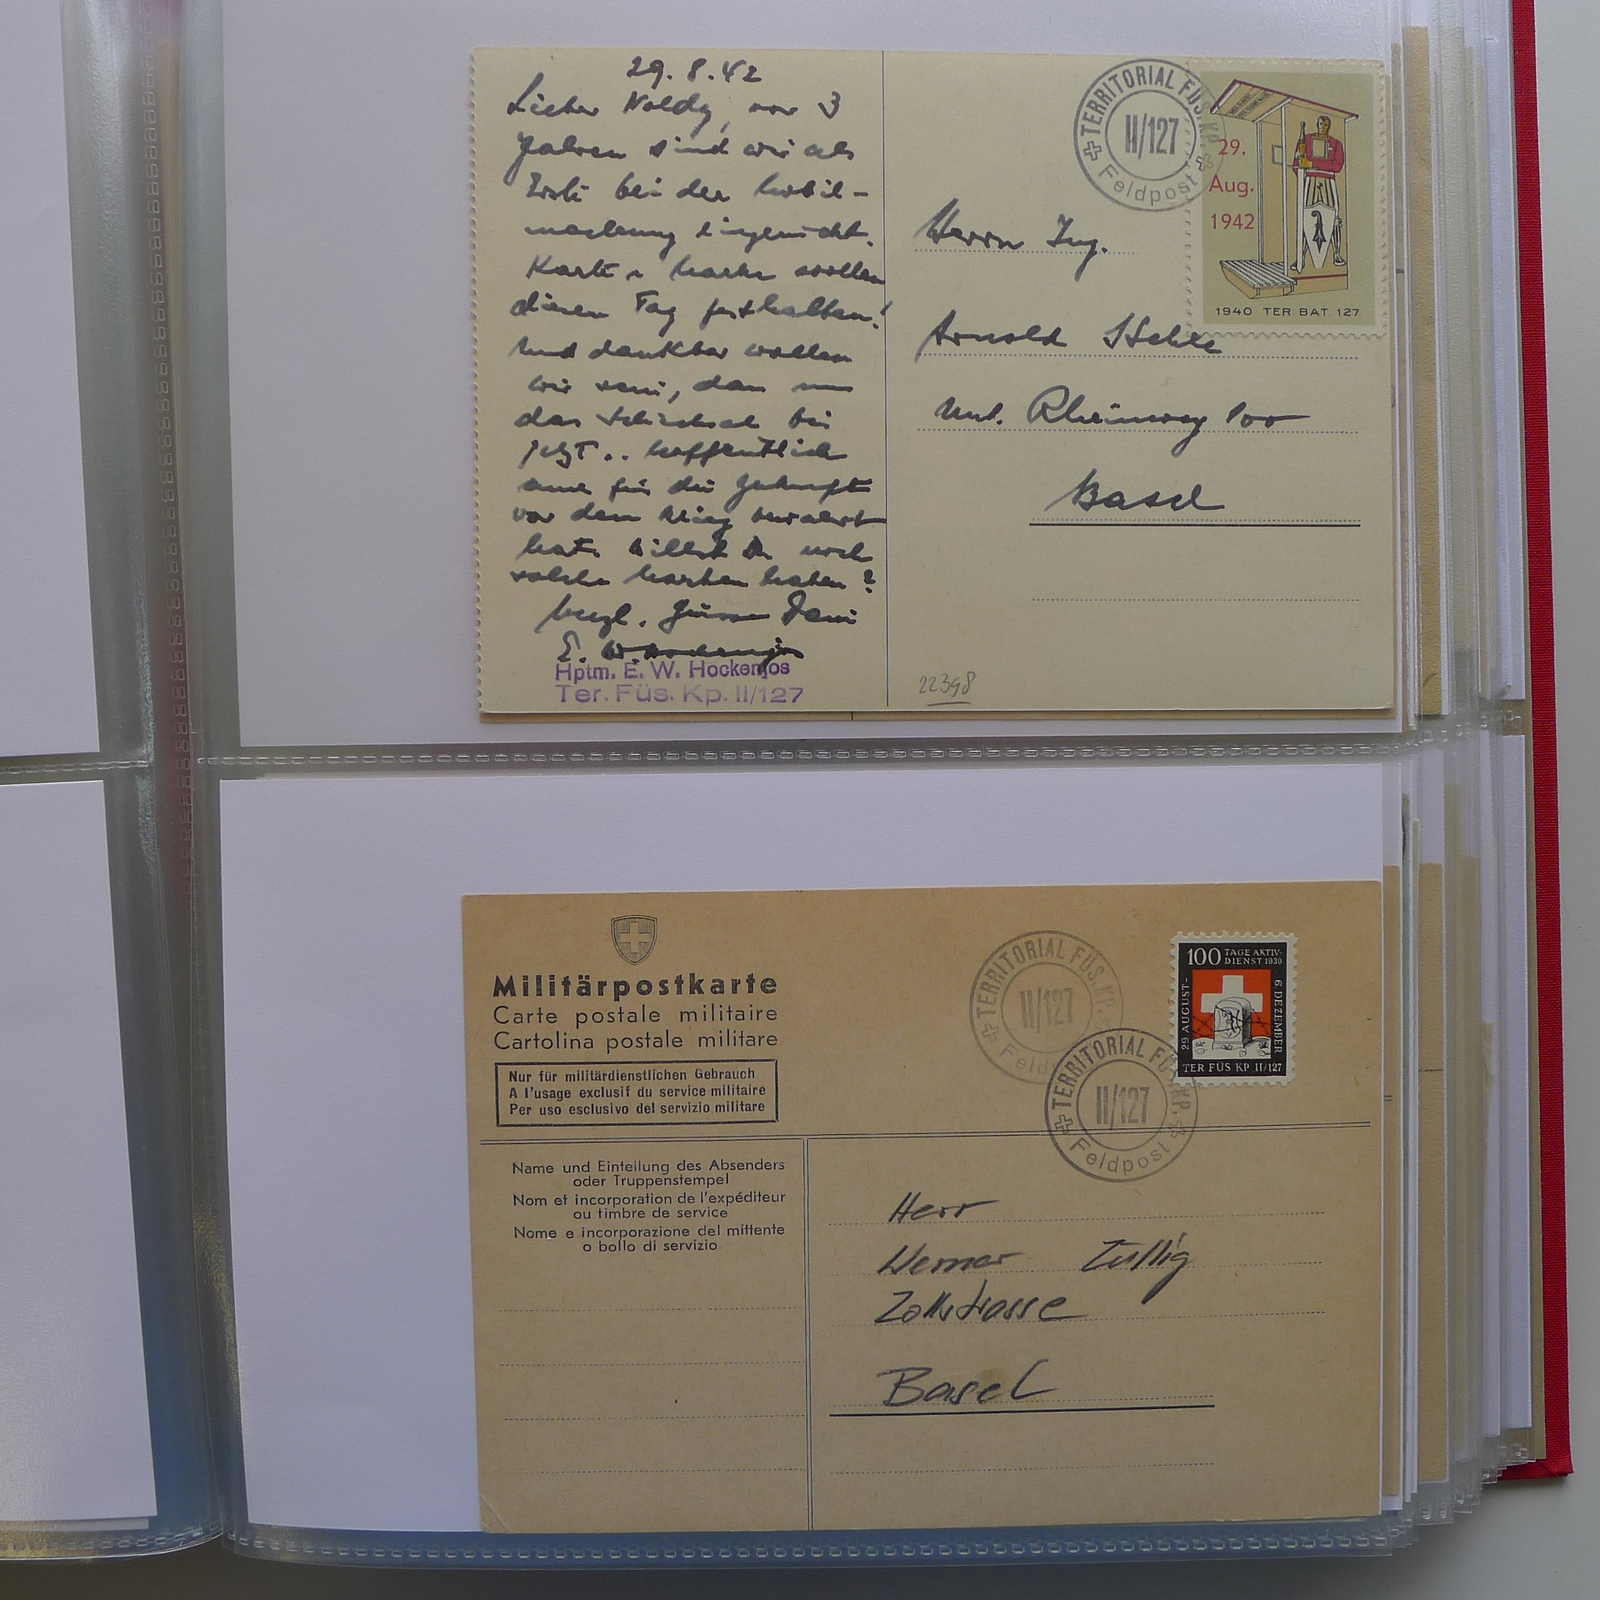 29.8.42
Lieber Noldy, vor 3
Jahren sind wir als
Erste bei der Mobil-
machung eingerückt.
Karte u. Marke wollen
diesen Tag festhalten!
Und dankbar wollen
wir sein, dass uns
das Schicksal bis
jetzt .. hoffentlich
auch für die Zukunft
vor dem Krieg bewahrt
hat. Willst Du noch
solche Marken haben?
Herzl. Grüsse Dein
E. W. Hockenjos
Hptm. E. W. Hockenjos
Ter. Füs. Kp. II/127
TERRITORIAL FÜS. KP.
II/127
Feldpost
29.
Aug.
1942
1940 TER BAT 127
Herrn Ing.
Arnold Stehle
Unt. Rheinweg 100
Basel
22398
Militärpostkarte
Carte postale militaire
Cartolina postale militare
Nur für militärdienstlichen Gebrauch
A l'usage exclusif du service militaire
Per uso esclusivo del servizio militare
Name und Einteilung des Absenders
oder Truppenstempel
Nom et incorporation de l'expéditeur
ou timbre de service
Nome e incorporazione del mittente
o bollo di servizio
TERRITORIAL FÜS. KP.
II/127
Feld
TERRITORIAL FÜS. KP.
II/127
Feldpost
100 TAGE AKTIV-
DIENST 1939
29 AUGUST-
6 DEZEMBER
TER FÜS KP II/127
Herr
Werner Zullig
Zollstrasse
Basel